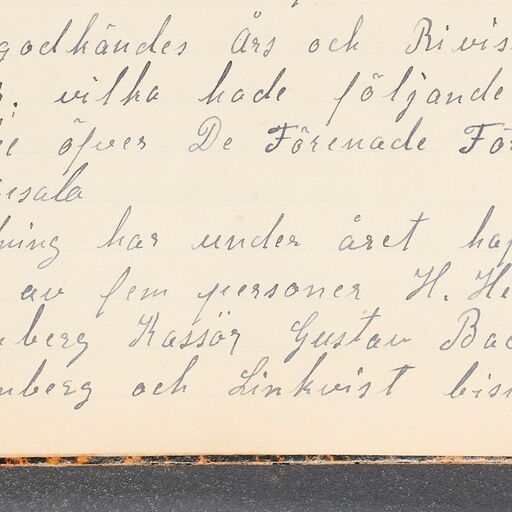 godkändes Års och Rivis
. vilka hade följande
öfver De Förenade Fö
sala
ning har under året ha
av fem personer H. He
nberg Kassör Gustav Bac
nberg och Linkvist bis